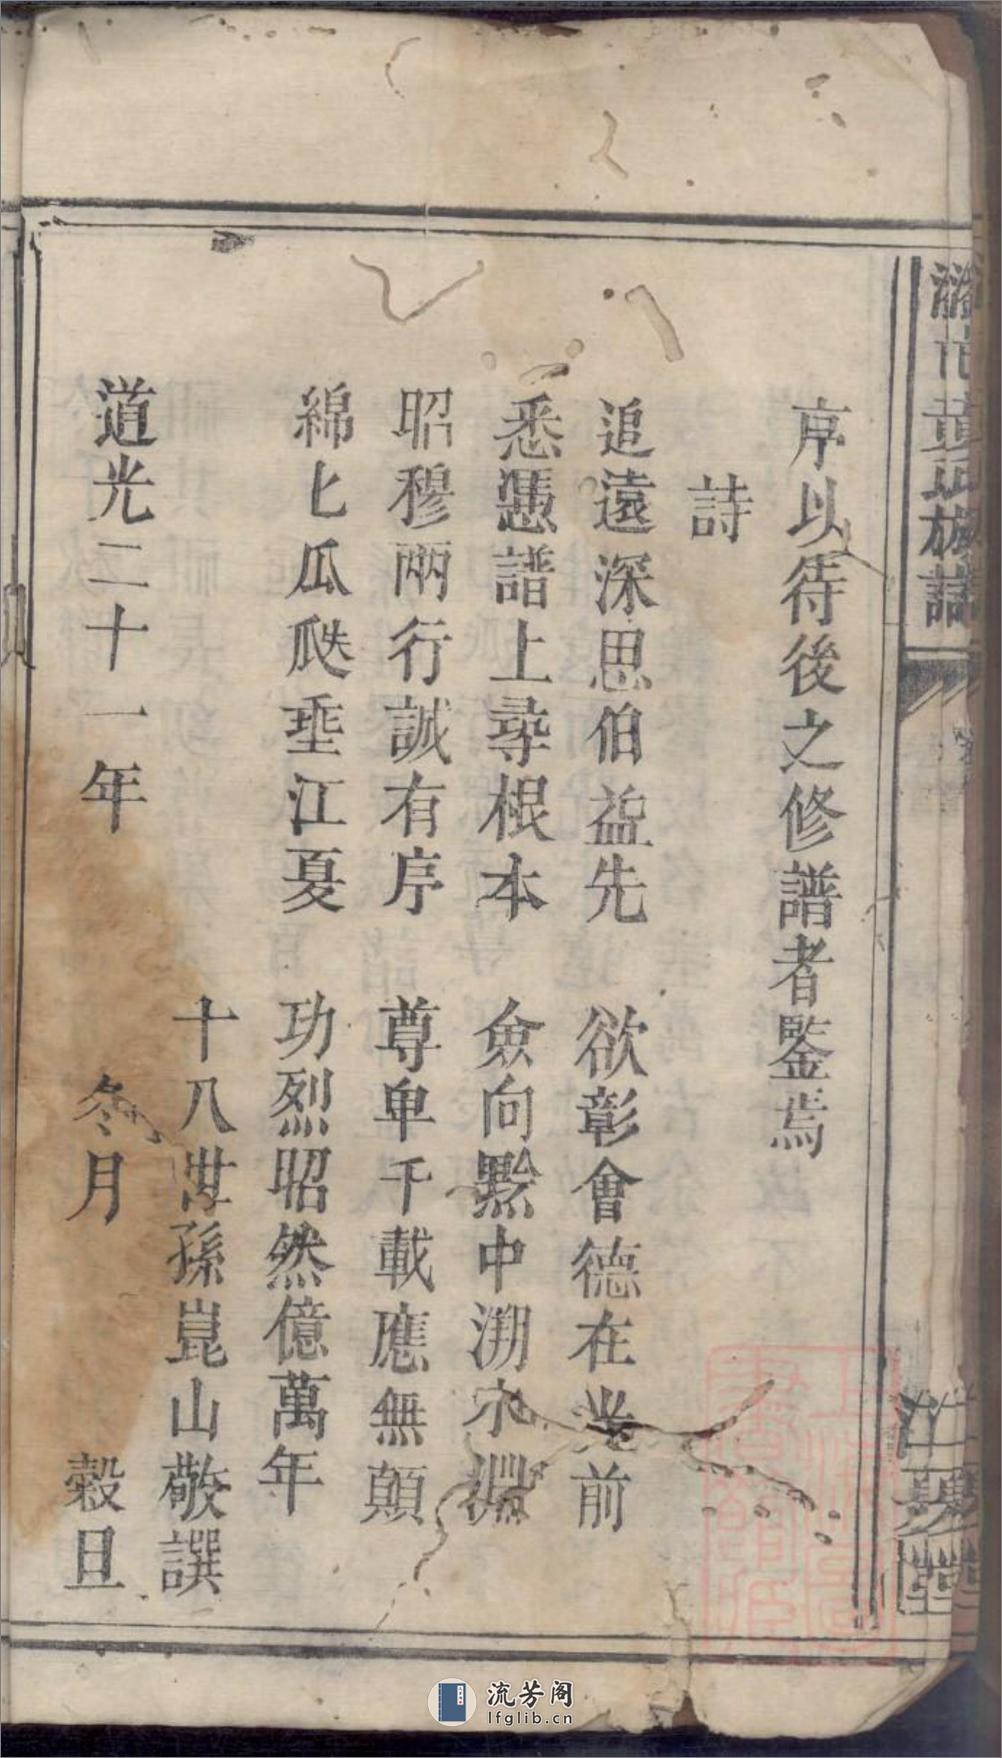 黃氏族譜
江夏堂
序以待後之修譜者鑒焉
詩
追遠深思伯益先 欲彰會德在光前
悉憑譜上尋根本 僉向黔中溯水淵
昭穆兩行誠有序 尊卑千載應無顛
綿匕瓜瓞垂江夏 功烈昭然億萬年
十八世孫崑山敬譔
道光二十一年 冬月 穀旦
流芳阁
lfglib.cn